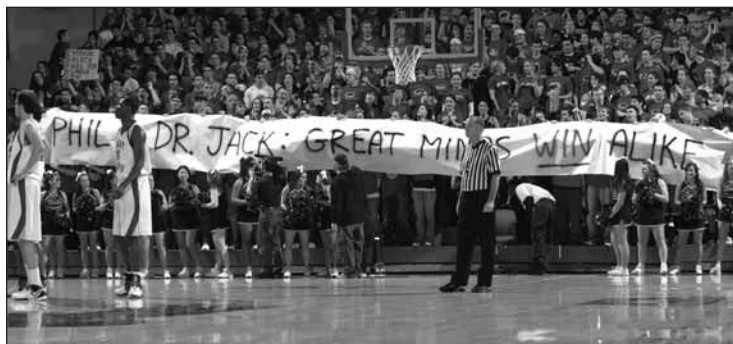 PHIL DR. JACK: GREAT MINDS WIN ALIKE